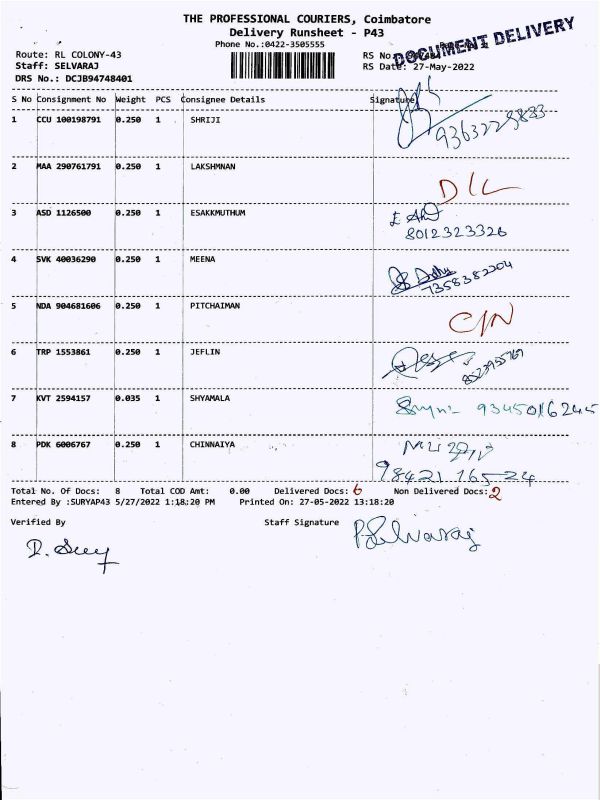 THE PROFESSIONAL COURIERS, Coimbatore
Delivery Runsheet - P43
Phone No.:0422-3505555
DOCUMENT DELIVERY
Route: RL COLONY-43
RS No.:
Staff: SELVARAJ
RS Date: 27-May-2022
DRS No.: DCJB94748401
S No Consignment No Weight PCS Consignee Details Signature
1 CCU 100198791 0.250 1 SHRIJI
9363225883
2 MAA 290761791 0.250 1 LAKSHMNAN
D/L
3 ASD 1126500 0.250 1 ESAKKUTHUM
8012323326
4 SVK 40036290 0.250 1 MEENA
7358382204
5 NDA 904681606 0.250 1 PITCHAIMAN
C/N
6 TRP 1553861 0.250 1 JEFLIN
7 KVT 2594157 0.035 1 SHYAMALA
9345016245
8 PDK 6006767 0.250 1 CHINNAIYA
98421 16524
Total No. Of Docs: 8 Total COD Amt: 0.00 Delivered Docs: 6 Non Delivered Docs: 2
Entered By :SURYAP43 5/27/2022 1:18:20 PM Printed On: 27-05-2022 13:18:20
Verified By Staff Signature
P. Selvaraj